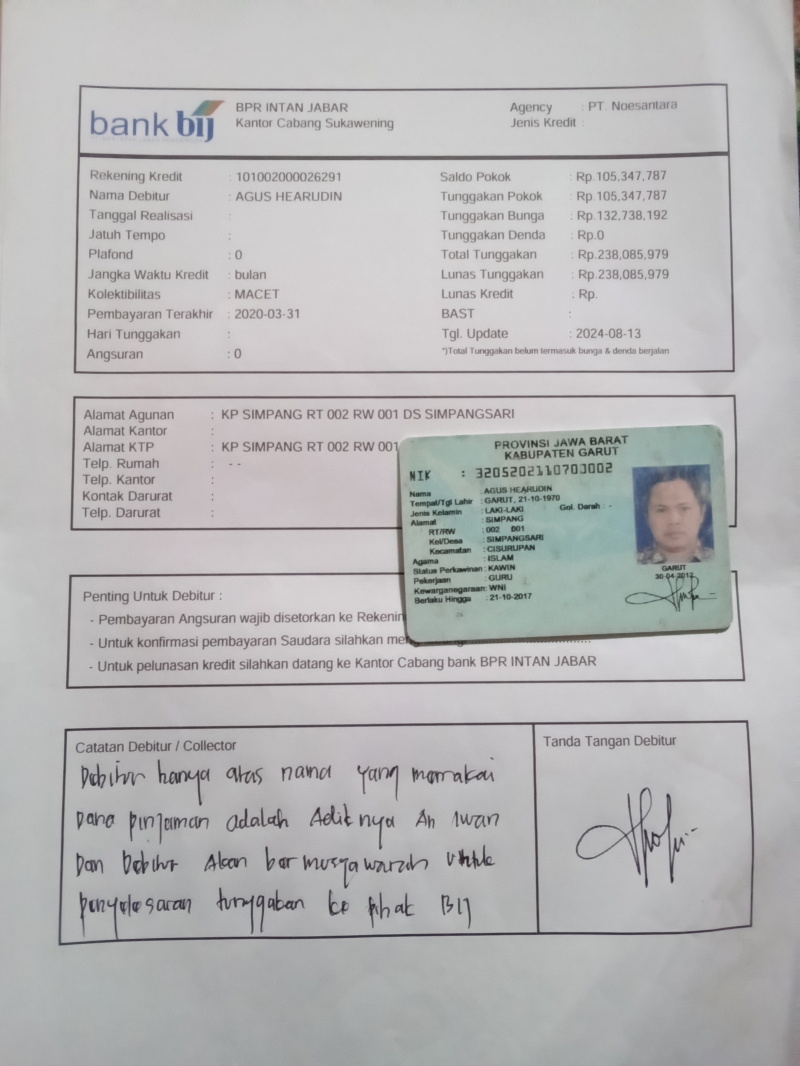 bank bij
BPR INTAN JABAR
Kantor Cabang Sukawening
Agency : PT. Noesantara
Jenis Kredit :
Rekening Kredit : 101002000026291
Nama Debitur : AGUS HEARUDIN
Tanggal Realisasi :
Jatuh Tempo :
Plafond : 0
Jangka Waktu Kredit : bulan
Kolektibilitas : MACET
Pembayaran Terakhir : 2020-03-31
Hari Tunggakan :
Angsuran : 0
Saldo Pokok : Rp.105,347,787
Tunggakan Pokok : Rp.105,347,787
Tunggakan Bunga : Rp.132,738,192
Tunggakan Denda : Rp.0
Total Tunggakan : Rp.238,085,979
Lunas Tunggakan : Rp.238,085,979
Lunas Kredit : Rp.
BAST :
Tgl. Update : 2024-08-13
*)Total Tunggakan belum termasuk bunga & denda berjalan
Alamat Agunan : KP SIMPANG RT 002 RW 001 DS SIMPANGSARI
Alamat Kantor :
Alamat KTP : KP SIMPANG RT 002 RW 001
Telp. Rumah : - -
Telp. Kantor :
Kontak Darurat :
Telp. Darurat :
PROVINSI JAWA BARAT
KABUPATEN GARUT
NIK : 3205202110700002
Nama : AGUS HEARUDIN
Tempat/Tgl Lahir : GARUT, 21-10-1970
Jenis Kelamin : LAKI-LAKI Gol. Darah : -
Alamat : SIMPANG
RT/RW : 002 001
Kel/Desa : SIMPANGSARI
Kecamatan : CISURUPAN
Agama : ISLAM
Status Perkawinan : KAWIN
Pekerjaan : GURU
Kewarganegaraan : WNI
Berlaku Hingga : 21-10-2017
GARUT
30-04-2012
Penting Untuk Debitur :
- Pembayaran Angsuran wajib disetorkan ke
- Untuk konfirmasi pembayaran Saudara silahkan
- Untuk pelunasan kredit silahkan datang ke Kantor Cabang bank BPR INTAN JABAR
Catatan Debitur / Collector
Debitur hanya atas nama yang memakai
Dana pinjaman adalah Adiknya An Iwan
Dan Debitur Akan bermusyawarah untuk
penyelesaian tunggakan ke pihak BIJ
Tanda Tangan Debitur